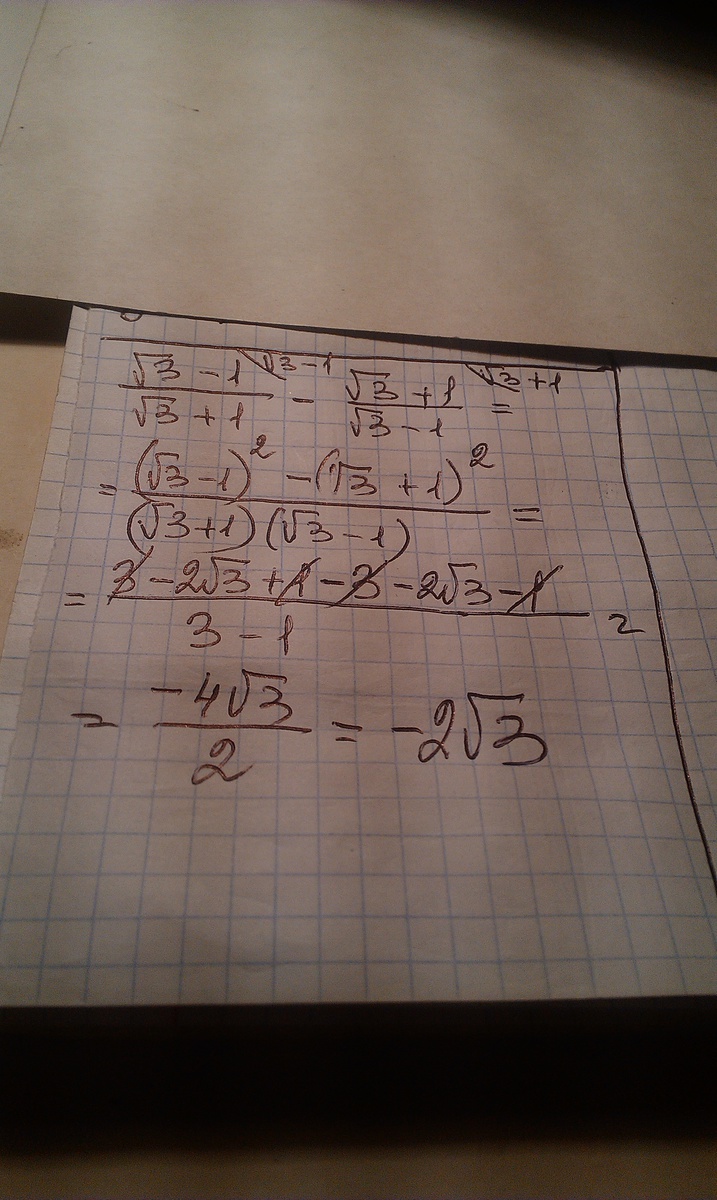 (√3 - 1)/(√3 + 1) \√3 - 1 - (√3 + 1)/(√3 - 1) \√3 + 1 =
= ((√3 - 1)² - (√3 + 1)²)/((√3 + 1)(√3 - 1)) =
= (3 - 2√3 + 1 - 3 - 2√3 - 1)/(3 - 1) =
= (-4√3)/2 = -2√3